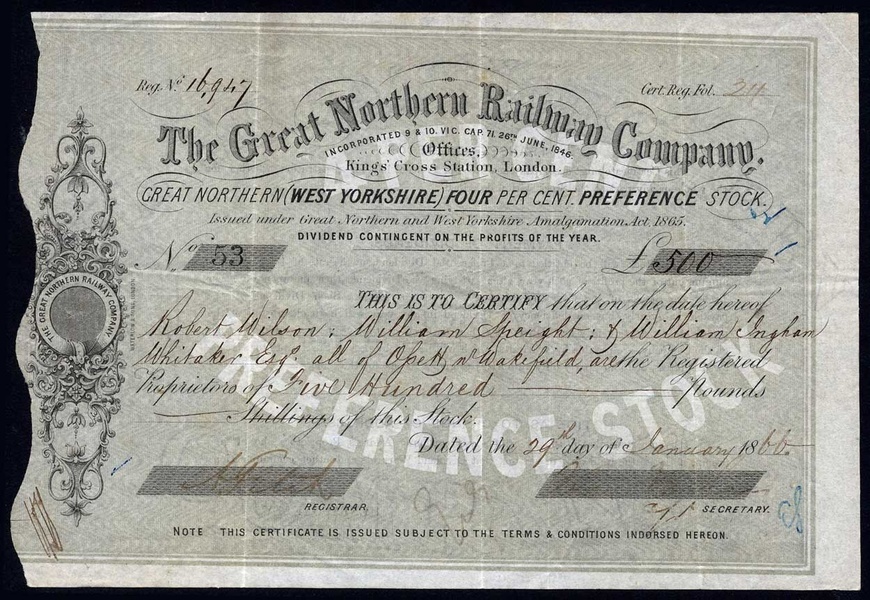 Reg. No. 16,947
Cert. Reg. Fol. 211
The Great Northern Railway Company.
INCORPORATED 9 & 10. VIC. CAP. 71. 26TH JUNE, 1846.
Offices,
Kings' Cross Station, London.
GREAT NORTHERN (WEST YORKSHIRE) FOUR PER CENT. PREFERENCE STOCK.
Issued under Great Northern and West Yorkshire Amalgamation Act. 1865.
DIVIDEND CONTINGENT ON THE PROFITS OF THE YEAR.
No. 53
£ 500
THIS IS TO CERTIFY that on the date hereof
Robert Wilson; William Speight; & William Ingham
Whitaker Esqs. all of Ossett nr Wakefield, are the Registered
Proprietors of Five Hundred Pounds
Shillings of this Stock.
Dated the 29th day of January 1866
REGISTRAR.
SECRETARY.
NOTE THIS CERTIFICATE IS ISSUED SUBJECT TO THE TERMS & CONDITIONS INDORSED HEREON.
THE GREAT NORTHERN RAILWAY COMPANY
PREFERENCE STOCK